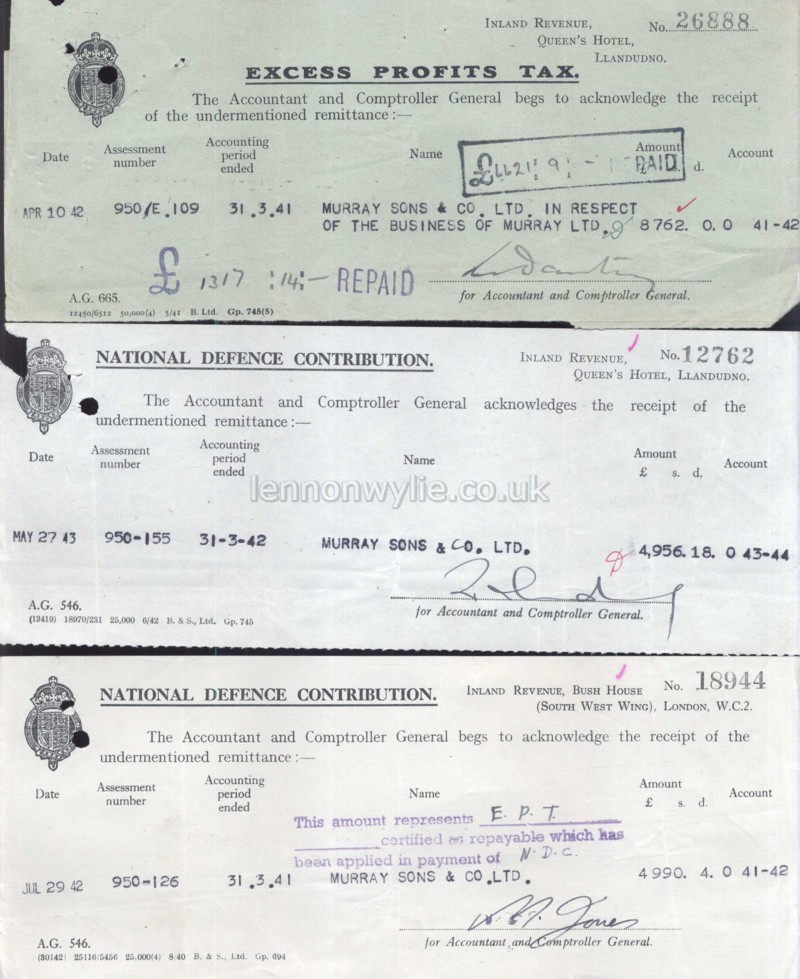 INLAND REVENUE, No. 26888
QUEEN'S HOTEL,
LLANDUDNO.
EXCESS PROFITS TAX.
The Accountant and Comptroller General begs to acknowledge the receipt
of the undermentioned remittance :—
Date Assessment number Accounting period ended Name Amount £ s. d. Account
£ 4421 : 9 : - PAID
APR 10 42 950/E.109 31.3.41 MURRAY SONS & CO. LTD. IN RESPECT
OF THE BUSINESS OF MURRAY LTD. 8762. 0. 0 41-42
£ 1317 : 14 : - REPAID
A.G. 665. for Accountant and Comptroller General.
12450/6512 50,000(4) 5/41 B. Ltd. Gp. 745(5)
NATIONAL DEFENCE CONTRIBUTION. INLAND REVENUE, No. 12762
QUEEN'S HOTEL, LLANDUDNO.
The Accountant and Comptroller General acknowledges the receipt of the
undermentioned remittance :—
Date Assessment number Accounting period ended Name Amount £ s. d. Account
lennonwylie.co.uk
MAY 27 43 950-155 31-3-42 MURRAY SONS & CO. LTD. 4,956.18. 0 43-44
A.G. 546. for Accountant and Comptroller General.
(13419) 18970/231 25,000 6/42 B. & S., Ltd. Gp. 745
NATIONAL DEFENCE CONTRIBUTION. INLAND REVENUE, BUSH HOUSE No. 18944
(SOUTH WEST WING), LONDON, W.C.2.
The Accountant and Comptroller General begs to acknowledge the receipt of the
undermentioned remittance :—
Date Assessment number Accounting period ended Name Amount £ s. d. Account
This amount represents E.P.T.
certified as repayable which has
been applied in payment of N.D.C.
JUL 29 42 950-126 31.3.41 MURRAY SONS & CO.LTD. 4990. 4. 0 41-42
Jones
A.G. 546. for Accountant and Comptroller General.
(30142) 25116/5456 25,000(4) 8/40 B. & S., Ltd. Gp. 694